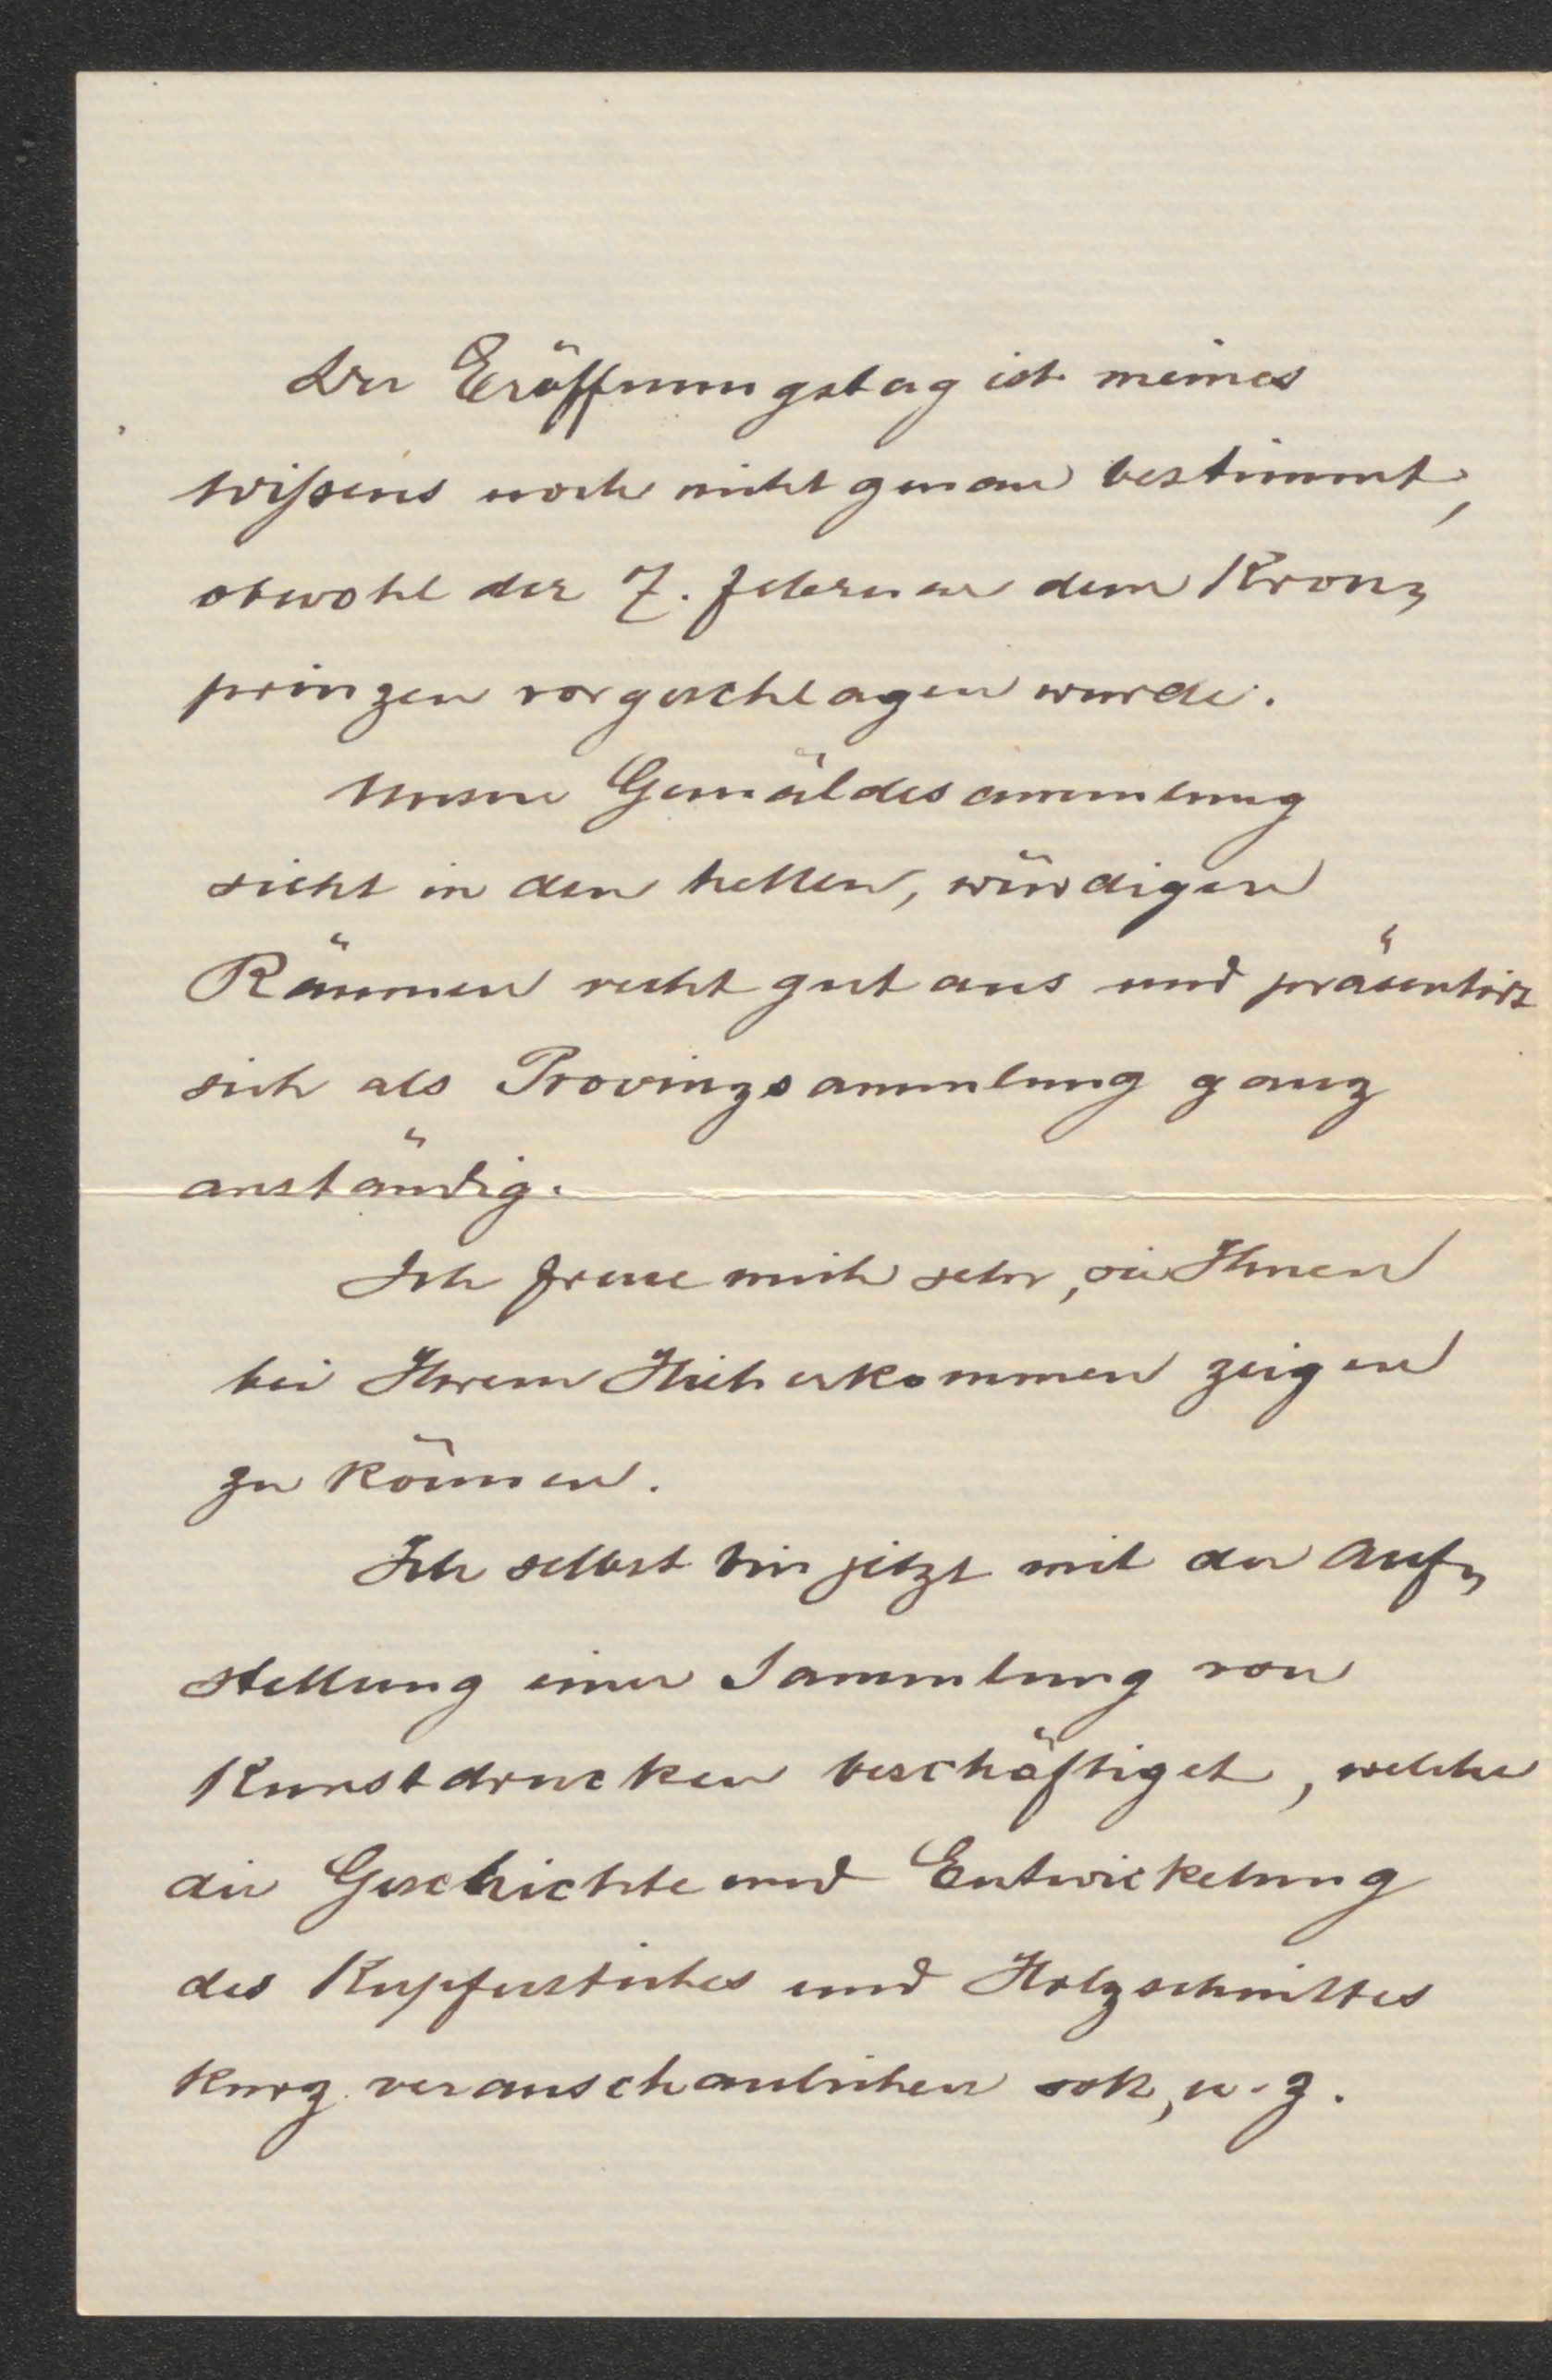 Der Eröffnungstag ist meines
Wißens noch nicht genau bestimmt,
obwohl der 7. Februar dem Kron-
prinzen vorgeschlagen wurde.
Unsere Gemäldesammlung
sieht in den hellen, würdigen
Räumen recht gut aus und präsentirt
sich als Provinzsammlung ganz
anständig.
Ich freue mich sehr, sie Ihnen
bei Ihrem Hieherkommen zeigen
zu können.
Ich selbst bin jetzt mit der Auf-
stellung einer Sammlung von
Kunstdrucken beschäftiget, welche
die Geschichte und Entwickelung
des Kupferstiches und Holzschnittes
kurz veranschaulichen soll, u. z.